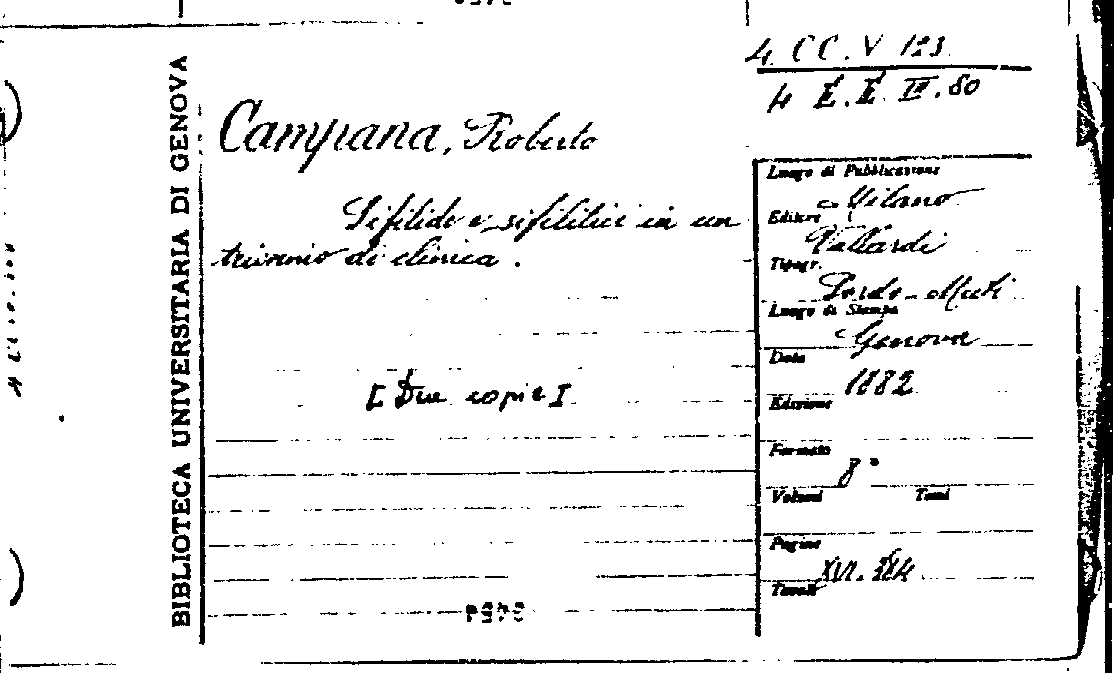 4. CC. V 123.
4 E. E. IV. 80
BIBLIOTECA UNIVERSITARIA DI GENOVA
Campana, Roberto
Sifilide e sifilitici in un
triennio di clinica.
[Due copie]
Luogo di Pubblicazione
Milano
Editore
Vallardi
Tipogr.
Sordo-Muti
Luogo di Stampa
Genova
Data
1882
Edizione
Formato
8°
Volumi Tomi
Pagine
XVI.
Tavole